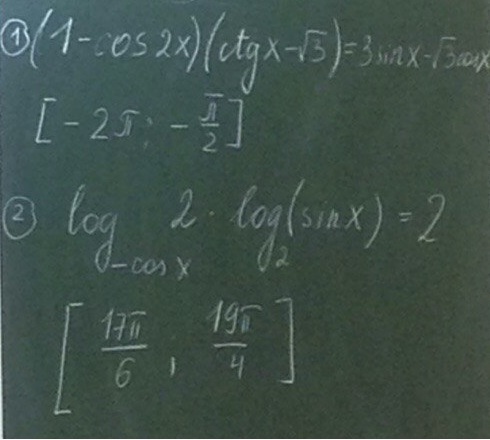 ① (1-cos2x)(ctgx-√3)=3sinx-√3cosx
[-2π; -π/2]
② log₋cosx 2 · log₂(sinx) = 2
[17π/6; 19π/4]